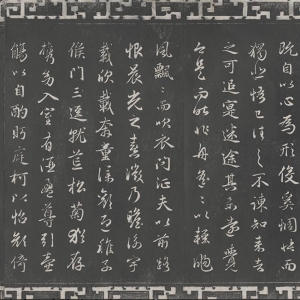 既自以心為形役奚惆悵而
獨悲悟已往之不諫知來者
之可追寔迷途其未遠覺
今是而昨非舟遙〻以輕颺
風飄〻而吹衣問征夫以前路
恨晨光之熹微乃瞻衡宇
載欣載奔童僕歡迎稚子
候門三逕就荒松菊猶存
攜幼入室有酒盈尊引壺
觴以自酌眄庭柯以怡顏倚